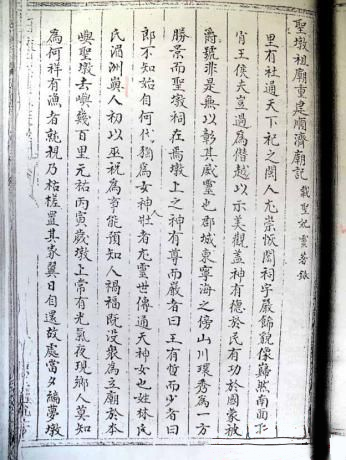 聖墩祖廟重建順濟廟記 載聖妃靈著錄
里有社通天下祀之閩人尤崇恢閎祠宇嚴飾貌像巍然南面
王侯夫豈過為僭越以示美觀蓋神有德於民有功於國蒙被
爵號非是無以彰其威靈也郡城東寧海之傍山川環秀為一方
勝景而聖墩祠在焉墩上之神有尊而嚴者曰王有晳而少者曰
郎不知始自何代獨為女神壯者尤靈世傳通天神女也姓林氏
湄洲嶼人初以巫祝為事能預知人禍福既歿眾為立廟於本
嶼聖墩去嶼幾百里元祐丙寅歲墩上常有光氣夜現鄉人莫知
為何祥有漁者就視乃枯槎置其家翼日自還故處當夕編夢墩